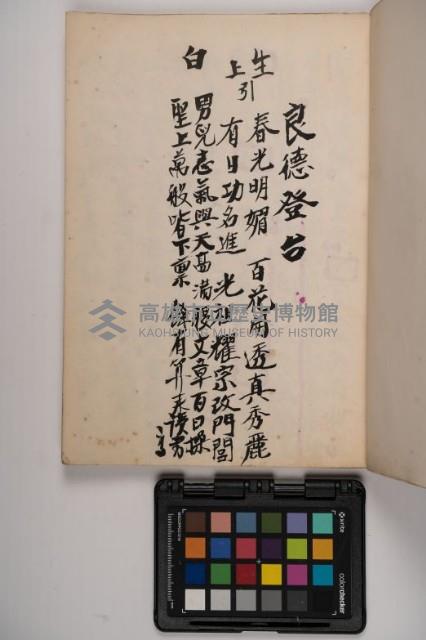 良德登台
生上引 春光明媚 百花開透真秀麗
有日功名進 光祖耀宗改門閭
白 男兒志氣與天高 滿腹文章百日操
聖上萬般皆下稟 有算來讀書高
高雄市立歷史博物館
KAOHSIUNG MUSEUM OF HISTORY
x-rite
colorchecker